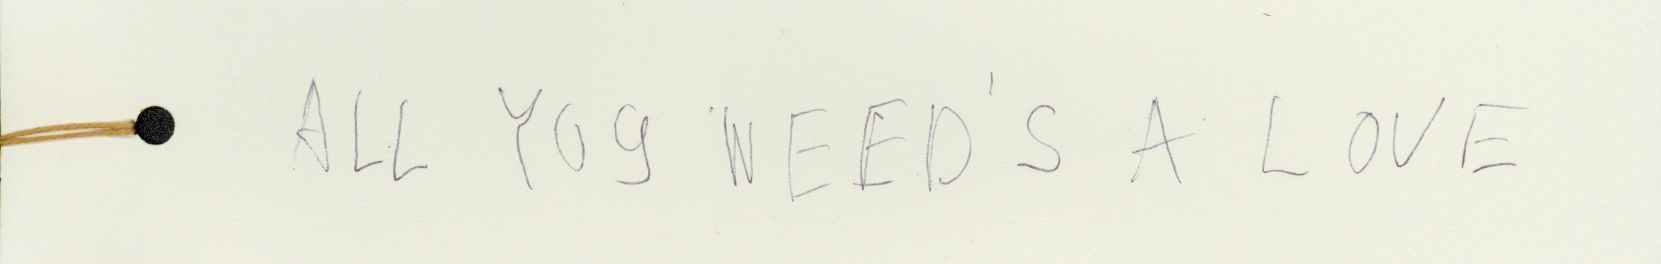 ALL YOU NEED'S A LOVE